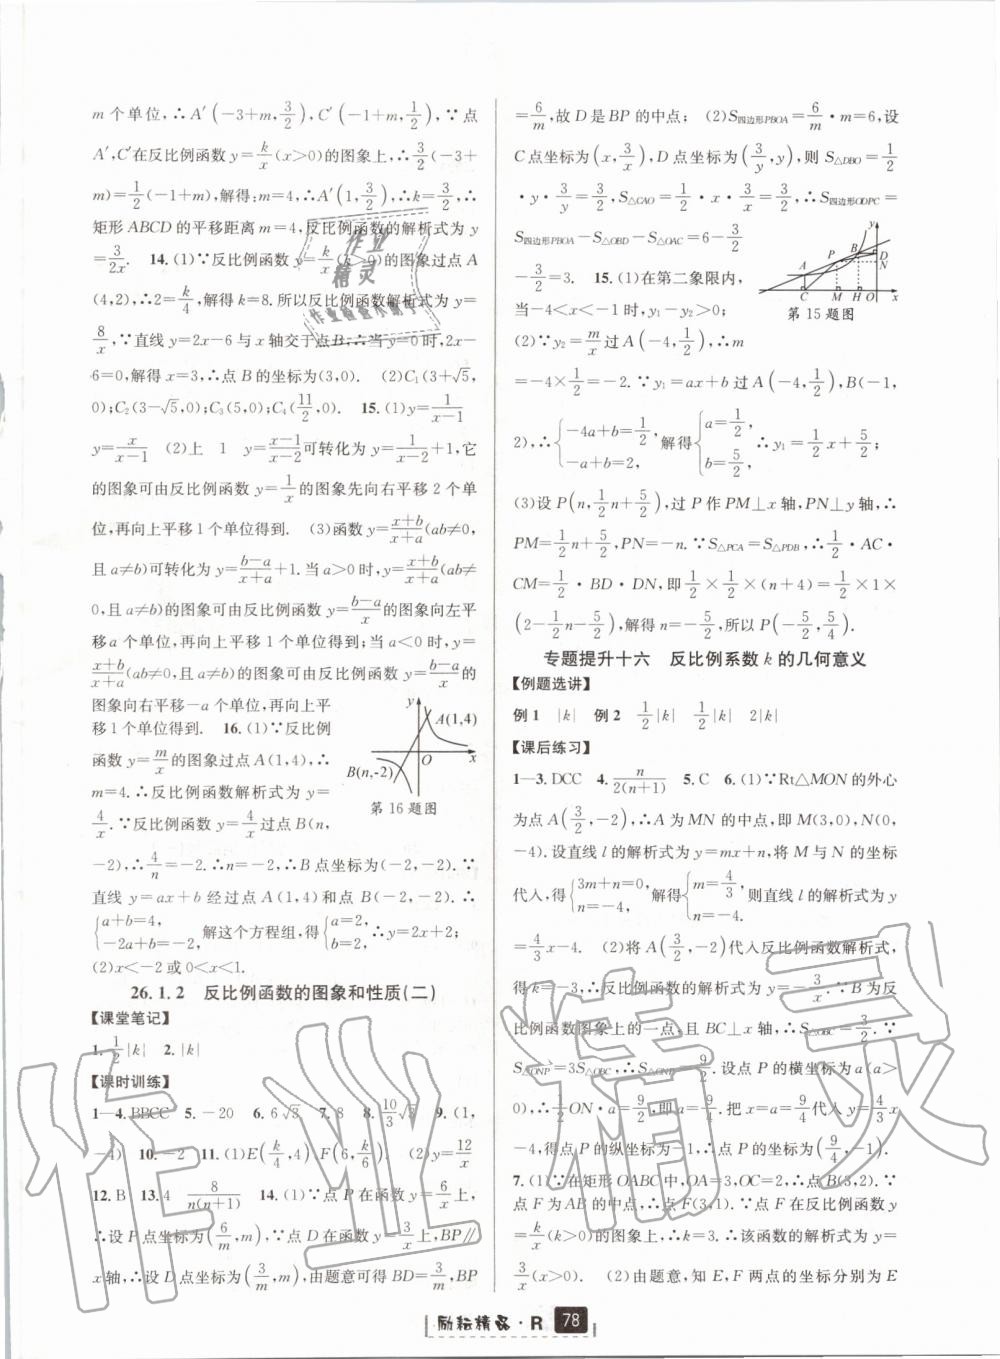 m个单位,∴A′(-3+m,3/2),C′(-1+m,1/2),∵点
A′,C′在反比例函数y=k/x(x>0)的图象上,∴3/2(-3+
m)=1/2(-1+m),解得:m=4,∴A′(1,3/2),∴k=3/2,∴
矩形ABCD的平移距离m=4,反比例函数的解析式为y
=3/2x. 14.(1)∵反比例函数y=k/x(k>0)的图象过点A
(4,2),∴2=k/4,解得k=8.所以反比例函数解析式为y=
8/x,∵直线y=2x-6与x轴交于点B,∴当y=0时,2x-
6=0,解得x=3,∴点B的坐标为(3,0). (2)C₁(3+√5,
0);C₂(3-√5,0);C₃(5,0);C₄(11/2,0). 15.(1)y=1/(x-1)
y=x/(x-1) (2)上 1 y=(x-1)/(x-2)可转化为y=1/(x-2)+1,它
的图象可由反比例函数y=1/x的图象先向右平移2个单
位,再向上平移1个单位得到. (3)函数y=(x+b)/(x+a)(ab≠0,
且a≠b)可转化为y=(b-a)/(x+a)+1.当a>0时,y=(x+b)/(x+a)(ab≠
0,且a≠b)的图象可由反比例函数y=(b-a)/x的图象向左平
移a个单位,再向上平移1个单位得到;当a<0时,y=
(x+b)/(x+a)(ab≠0,且a≠b)的图象可由反比例函数y=(b-a)/x的
图象向右平移-a个单位,再向上平
移1个单位得到. 16.(1)∵反比例
函数y=m/x的图象过点A(1,4),∴
m=4.∴反比例函数解析式为y=
4/x.∵反比例函数y=4/x过点B(n,
-2),∴4/n=-2.∴n=-2,∴B点坐标为(-2,-2).∵
直线y=ax+b经过点A(1,4)和点B(-2,-2).∴
{a+b=4, -2a+b=-2, 解这个方程组,得{a=2, b=2, ∴y=2x+2;
(2)x<-2或0<x<1.
y
A(1,4)
O
x
B(n,-2)
第16题图
26.1.2 反比例函数的图象和性质(二)
【课堂笔记】
1.1/2|k| 2.|k|
【课时训练】
1—4.BBCC 5.-20 6.6√3 7.8 8.10/3√3 9.(1,
-4) 10.-2 11.(1)E(k/4,4),F(6,k/6). (2)y=12/x
12.B 13.4 8/n(n+1) 14.(1)∵点P在函数y=6/x上,
∴设P点坐标为(6/m,m),∵点D在函数y=3/x上,BP∥
x轴,∴设D点坐标为(3/m,m),由题意可得BD=3/m,BP
=6/m,故D是BP的中点; (2)S四边形PBOA=6/m·m=6,设
C点坐标为(x,3/x),D点坐标为(3/y,y),则S△DBO=1/2
·y·3/y=3/2,S△CAO=1/2·x·3/x=3/2,∴S四边形ODPC=
S四边形PBOA-S△OBD-S△OAC=6-3/2
-3/2=3. 15.(1)在第二象限内,
当-4<x<-1时,y₁-y₂>0;
(2)∵y₂=m/x过A(-4,1/2),∴m
=-4×1/2=-2.∵y₁=ax+b过A(-4,1/2),B(-1,
2),∴{-4a+b=1/2, -a+b=2, 解得{a=1/2, b=5/2, ∴y₁=1/2x+5/2;
y
B
D
P
N
A
C
M
H
O
x
第15题图
(3)设P(n,1/2n+5/2),过P作PM⊥x轴,PN⊥y轴,∴
PM=1/2n+5/2,PN=-n.∵S△PCA=S△PDB,∴1/2·AC·
CM=1/2·BD·DN,即1/2×1/2×(n+4)=1/2×1×
(2-1/2n-5/2),解得n=-5/2,所以P(-5/2,5/4).
专题提升十六 反比例系数k的几何意义
【例题选讲】
例1 |k| 例2 1/2|k| 1/2|k| 2|k|
【课后练习】
1—3.DCC 4.n/2(n+1) 5.C 6.(1)∵Rt△MON的外心
为点A(3/2,-2),∴A为MN的中点,即M(3,0),N(0,
-4).设直线l的解析式为y=mx+n,将M与N的坐标
代入,得{3m+n=0, n=-4, 解得{m=4/3, n=-4. 则直线l的解析式为y
=4/3x-4. (2)将A(3/2,-2)代入反比例函数解析式,
得k=-3,∴反比例函数的解析式为y=-3/x.∵B为反
比例函数图象上的一点,且BC⊥x轴,∴S△OBC=3/2.∵
S△ONP=3S△OBC,∴S△ONP=9/2.设点P的横坐标为a(a>
0),∴1/2ON·a=9/2,即a=9/4.把x=a=9/4代入y=4/3x
-4,得点P的纵坐标为-1,∴点P的坐标为(9/4,-1).
7.(1)∵在矩形OABC中,OA=3,OC=2,∴点B(3,2).∵
点F为AB的中点,∴点F(3,1).∵点F在反比例函数y=
k/x(k>0)的图象上,∴k=3,∴该函数的解析式为y=
3/x(x>0). (2)由题意,知E,F两点的坐标分别为E
作业
精灵
作业检查小助手
作业精灵
励耘精品·R 78